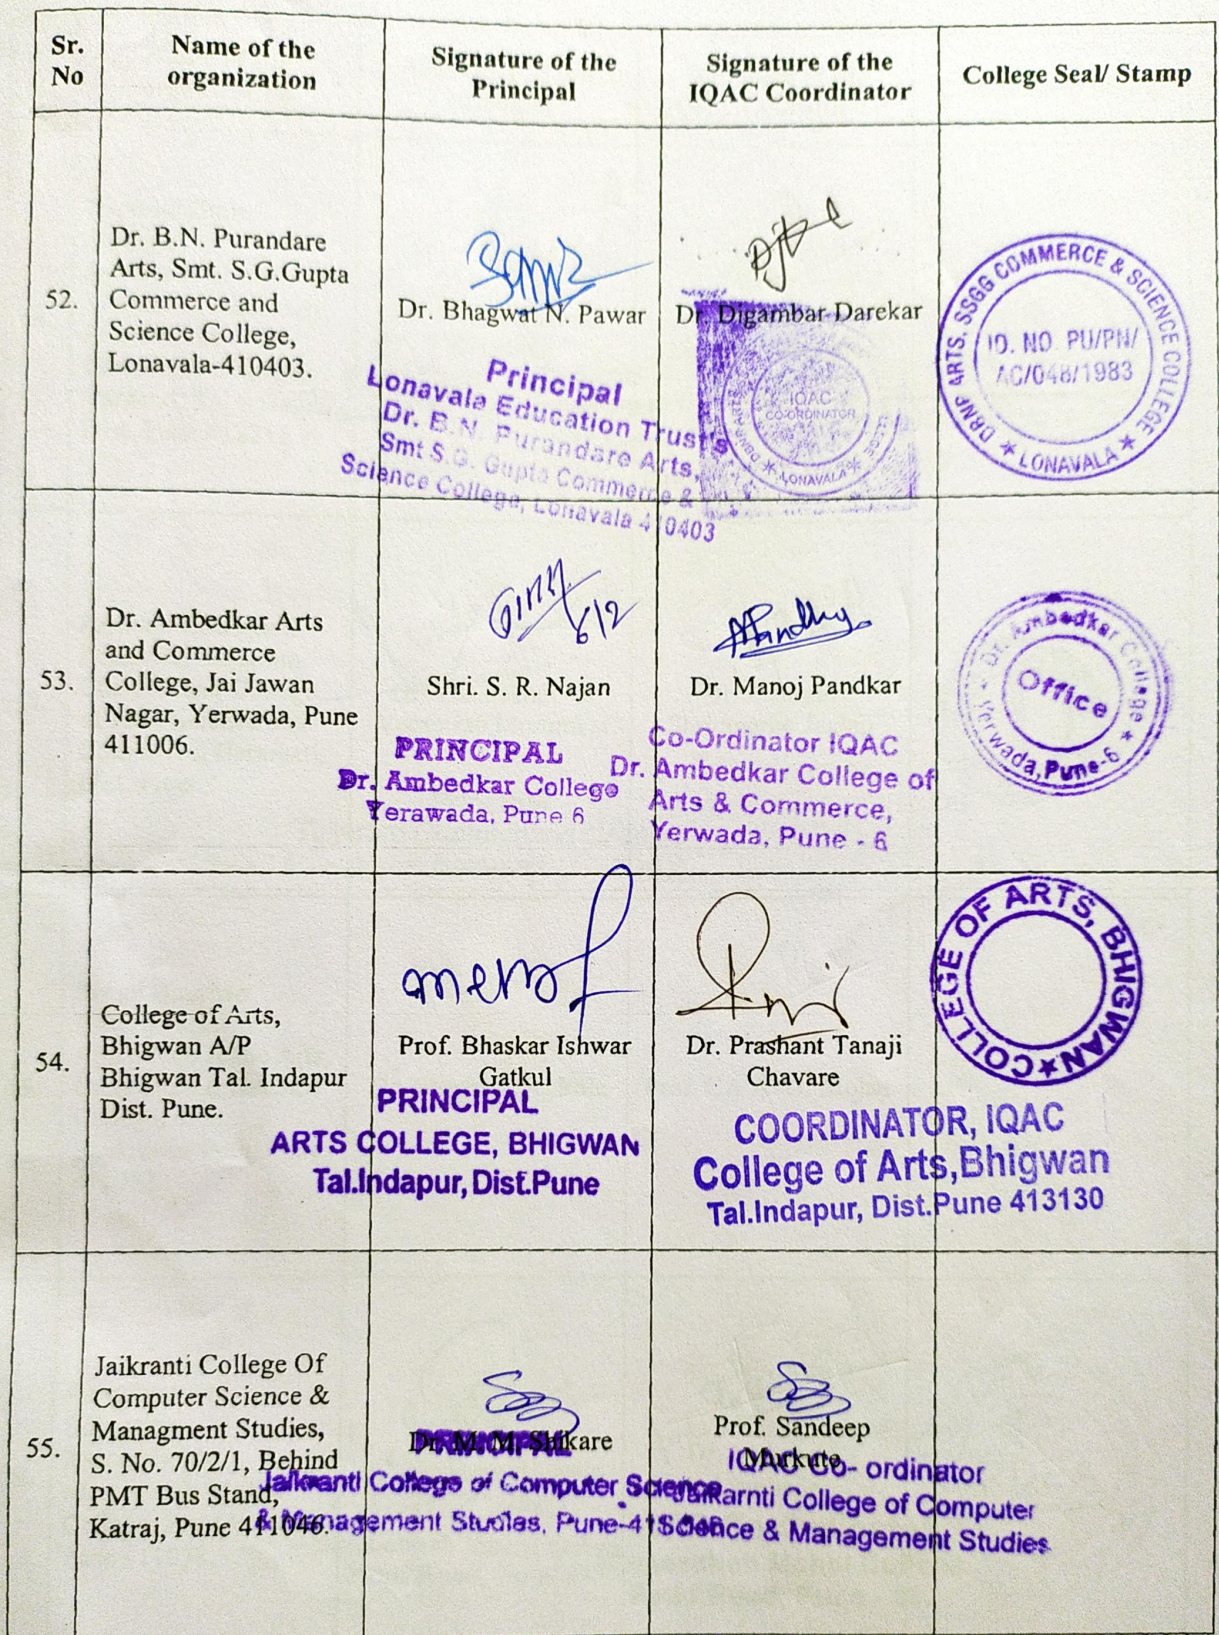 Sr.
No
Name of the
organization
Signature of the
Principal
Signature of the
IQAC Coordinator
College Seal/ Stamp
52.
Dr. B.N. Purandare
Arts, Smt. S.G.Gupta
Commerce and
Science College,
Lonavala-410403.
Dr. Bhagwat N. Pawar
Principal
Lonavala Education Trust's
Dr. B.N. Purandare Arts,
Smt S.G. Gupta Commerce &
Science College, Lonavala 410403
Dr. Digambar Darekar
IQAC
CO-ORDINATOR
LONAVALA
DBNP ARTS, SSGG COMMERCE & SCIENCE COLLEGE
ID. NO. PU/PN/
AC/048/1983
★ LONAVALA ★
53.
Dr. Ambedkar Arts
and Commerce
College, Jai Jawan
Nagar, Yerwada, Pune
411006.
6/2
Shri. S. R. Najan
PRINCIPAL
Dr. Ambedkar College
Yerawada, Pune 6
Dr. Manoj Pandkar
Co-Ordinator IQAC
Dr. Ambedkar College of
Arts & Commerce,
Yerwada, Pune - 6
Dr. Ambedkar College ★
Office
Yerwada, Pune-6
54.
College of Arts,
Bhigwan A/P
Bhigwan Tal. Indapur
Dist. Pune.
Prof. Bhaskar Ishwar
Gatkul
PRINCIPAL
ARTS COLLEGE, BHIGWAN
Tal.Indapur, Dist.Pune
Dr. Prashant Tanaji
Chavare
COORDINATOR, IQAC
College of Arts,Bhigwan
Tal.Indapur, Dist.Pune 413130
COLLEGE OF ARTS, BHIGWAN★
55.
Jaikranti College Of
Computer Science &
Managment Studies,
S. No. 70/2/1, Behind
PMT Bus Stand,
Katraj, Pune 411046.
Dr. M. M. Shikare
PRINCIPAL
Jaikranti College of Computer Science
& Management Studies, Pune-
Prof. Sandeep
Murkute
IQAC Co- ordinator
Jaikarnti College of Computer
Science & Management Studies